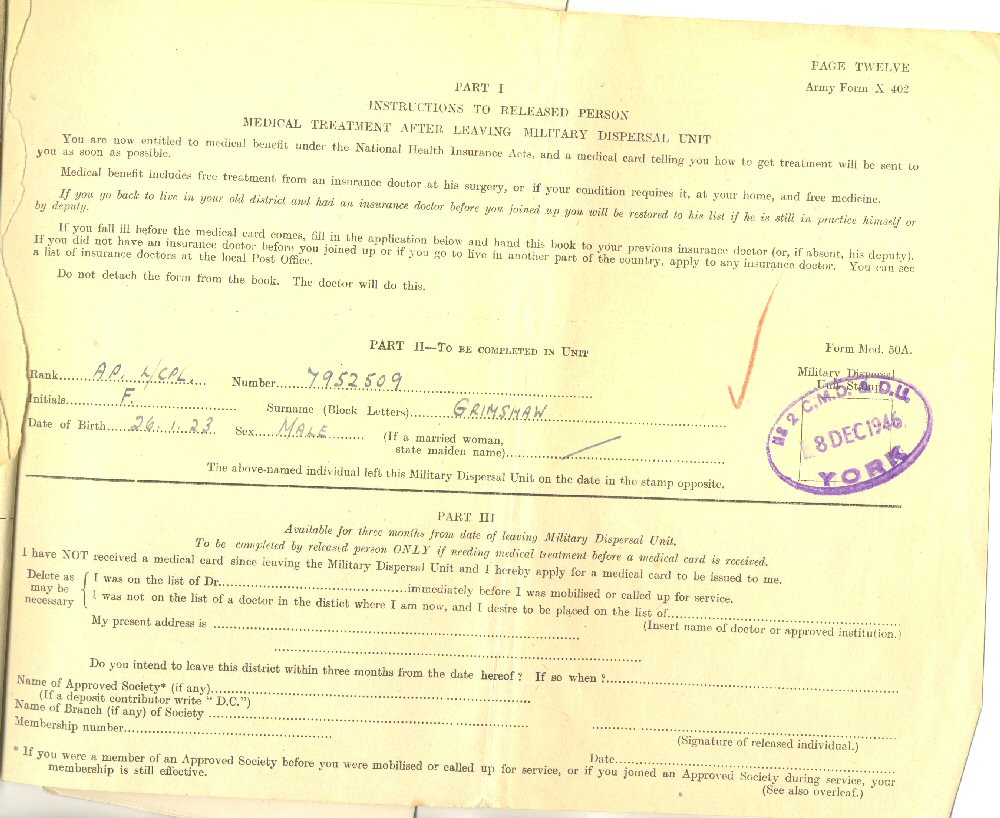 PAGE TWELVE
Army Form X 402
PART I
INSTRUCTIONS TO RELEASED PERSON
MEDICAL TREATMENT AFTER LEAVING MILITARY DISPERSAL UNIT
You are now entitled to medical benefit under the National Health Insurance Acts, and a medical card telling you how to get treatment will be sent to
you as soon as possible.
Medical benefit includes free treatment from an insurance doctor at his surgery, or if your condition requires it, at your home, and free medicine.
If you go back to live in your old district and had an insurance doctor before you joined up you will be restored to his list if he is still in practice himself or
by deputy.
If you fall ill before the medical card comes, fill in the application below and hand this book to your previous insurance doctor (or, if absent, his deputy).
If you did not have an insurance doctor before you joined up or if you go to live in another part of the country, apply to any insurance doctor. You can see
a list of insurance doctors at the local Post Office.
Do not detach the form from the book. The doctor will do this.
PART II—TO BE COMPLETED IN UNIT
Form Med. 50A.
Rank AP. L/CPL. Number 7952509
Military Dispersal
Unit Stamp
Initials F. Surname (Block Letters) GRIMSHAW
Date of Birth 26.1.23 Sex MALE (If a married woman,
state maiden name)
2 C.M.D. & D.U.
8 DEC 1946
YORK
The above-named individual left this Military Dispersal Unit on the date in the stamp opposite.
PART III
Available for three months from date of leaving Military Dispersal Unit.
To be completed by released person ONLY if needing medical treatment before a medical card is received.
I have NOT received a medical card since leaving the Military Dispersal Unit and I hereby apply for a medical card to be issued to me.
Delete as
may be
necessary
I was on the list of Dr. immediately before I was mobilised or called up for service.
I was not on the list of a doctor in the distict where I am now, and I desire to be placed on the list of
(Insert name of doctor or approved institution.)
My present address is
Do you intend to leave this district within three months from the date hereof? If so when?
Name of Approved Society* (if any)
(If a deposit contributor write "D.C.")
Name of Branch (if any) of Society
Membership number
(Signature of released individual.)
Date
* If you were a member of an Approved Society before you were mobilised or called up for service, or if you joined an Approved Society during service, your
membership is still effective.
(See also overleaf.)